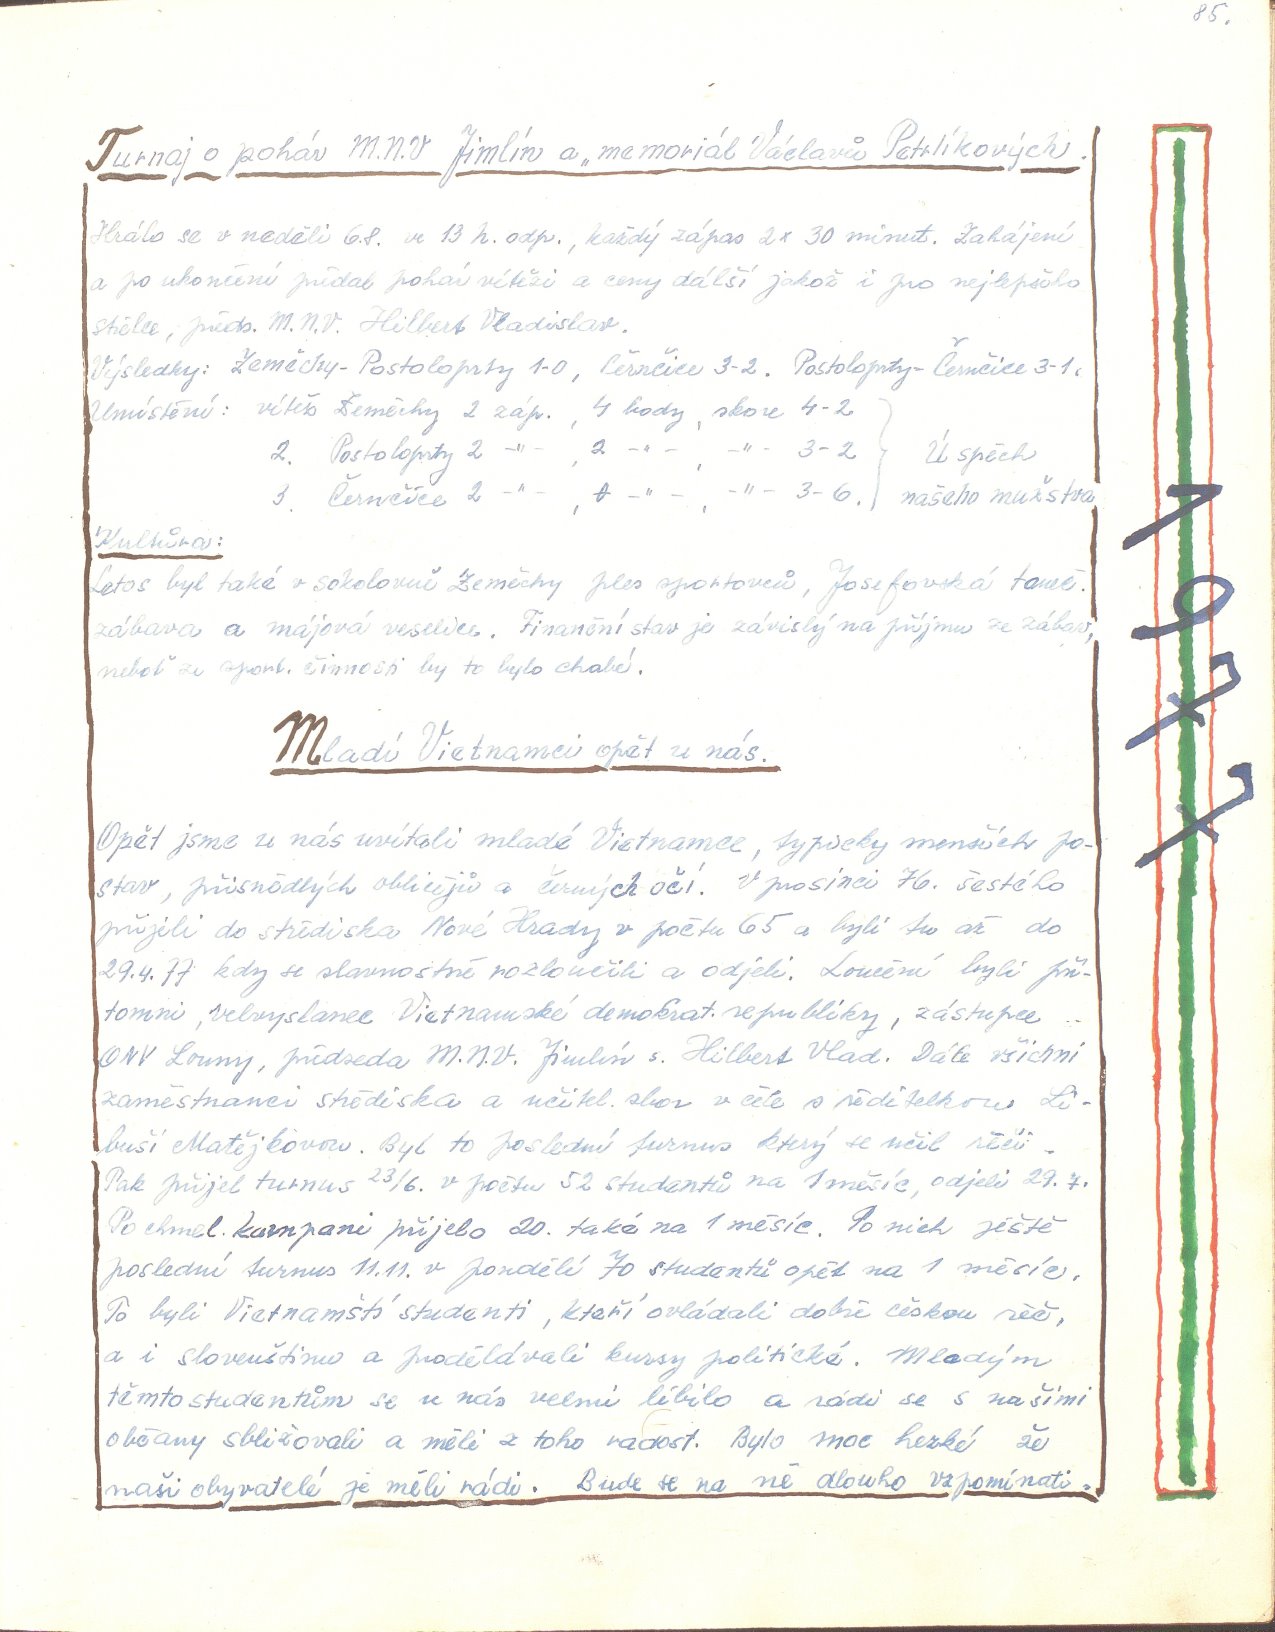 85.
Turnaj o pohár M.N.V Jimlín a „memoriál Václavů Petrlíkových.
Hrálo se v neděli 6.8. ve 13 h. odp., každý zápas 2x 30 minut. Zahájení
a po ukončení předal pohár vítězi a ceny další jakož i pro nejlepšího
střelce, předs. M.N.V. Hilbert Vladislav.
Výsledky: Zeměchy - Postoloprty 1-0, Černčice 3-2. Postoloprty - Černčice 3-1.
Umístění: vítěz Zeměchy 2 záp., 4 body, skore 4-2
2. Postoloprty 2 -"- , 2 -"- , -"- 3-2 Úspěch
3. Černčice 2 -"- , 0 -"- , -"- 3-6. našeho mužstva
Kultůra:
Letos byl také v sokolovně Zeměchy ples sportovců, Josefovská taneč.
zábava a májová veselice. Finanční stav je závislý na příjmu ze zábav,
neboť ze sport. činnosti by to bylo chabé.
Mladí Vietnamci opět u nás.
Opět jsme u nás uvítali mladé Vietnamce, typicky menších po-
stav, přisnědlých obličejů a černých očí. V prosinci 76. šestého
přijeli do střediska Nové Hrady v počtu 65 a byli tu až do
29.4.77 kdy se slavnostně rozloučili a odjeli. Loučení byli pří-
tomni, velvyslanec Vietnamské demokrat. republiky, zástupce
ONV Louny, předseda M.N.V. Jimlín s. Hilbert Vlad. Dále všichni
zaměstnanci střediska a učitel. sbor v čele s ředitelkou Li-
buší Matějkovou. Byl to poslední turnus který se učil řeči.
Pak přijel turnus 23/6. v počtu 52 studentů na 1 měsíc, odjeli 29.7.
Po chmel. kampani přijelo 20. také na 1 měsíc. Po nich ještě
poslední turnus 11.11. v pondělí 70 studentů opět na 1 měsíc.
To byli Vietnamští studenti, kteří ovládali dobře českou řeč,
a i slovenštinu a prodělávali kursy politické. Mladým
těmto studentům se u nás velmi líbilo a rádi se s našimi
občany sbližovali a měli z toho radost. Bylo moc hezké že
naši obyvatelé je měli rádi. Bude se na ně dlouho vzpomínati.
1977